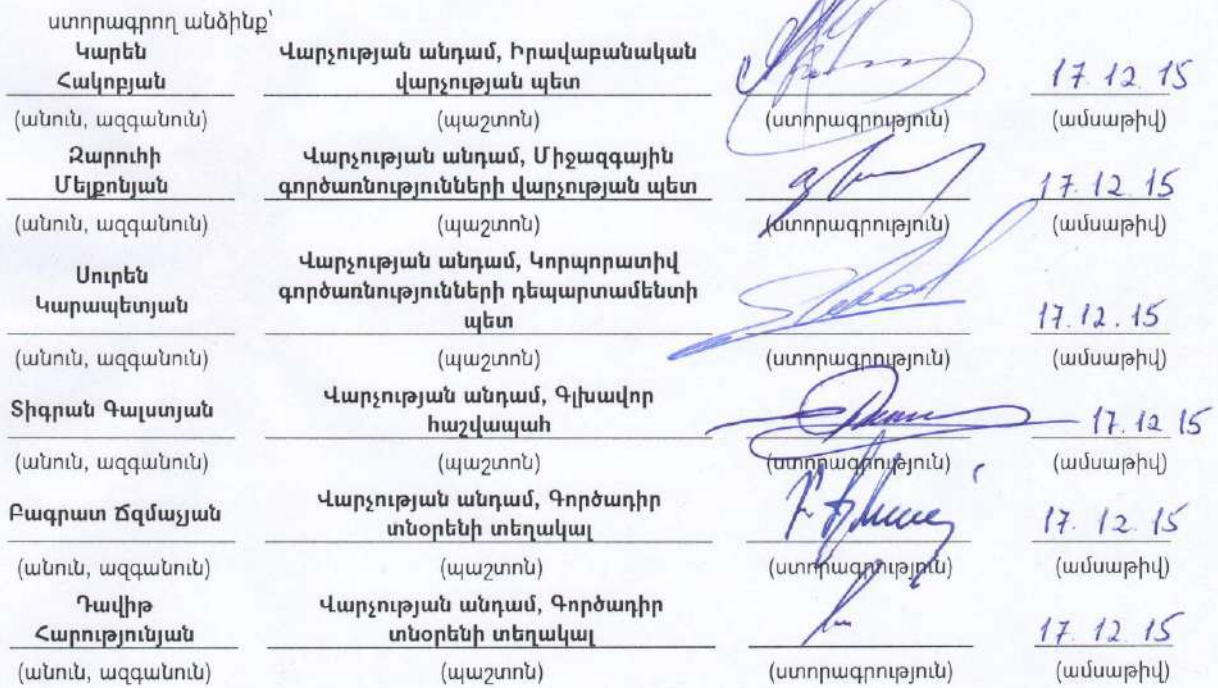 ստորագրող անձինք՝
Կարեն Վարչության անդամ, Իրավաբանական
Հակոբյան վարչության պետ 17.12.15
(անուն, ազգանուն) (պաշտոն) (ստորագրություն) (ամսաթիվ)
Զարուհի Վարչության անդամ, Միջազգային
Մելքոնյան գործառնությունների վարչության պետ 17.12.15
(անուն, ազգանուն) (պաշտոն) (ստորագրություն) (ամսաթիվ)
Վարչության անդամ, Կորպորատիվ
Սուրեն գործառնությունների դեպարտամենտի
Կարապետյան պետ 17.12.15
(անուն, ազգանուն) (պաշտոն) (ստորագրություն) (ամսաթիվ)
Տիգրան Գալստյան Վարչության անդամ, Գլխավոր
հաշվապահ 17.12 15
(անուն, ազգանուն) (պաշտոն) (ստորագրություն) (ամսաթիվ)
Բագրատ Ճզմաչյան Վարչության անդամ, Գործադիր
տնօրենի տեղակալ 17. 12. 15
(անուն, ազգանուն) (պաշտոն) (ստորագրություն) (ամսաթիվ)
Դավիթ Վարչության անդամ, Գործադիր
Հարությունյան տնօրենի տեղակալ 17.12.15
(անուն, ազգանուն) (պաշտոն) (ստորագրություն) (ամսաթիվ)